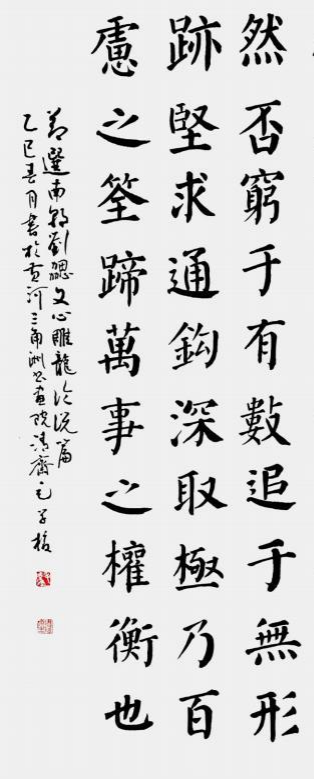 然否窮于有數追于無形
跡堅求通鈎深取極乃百
慮之筌蹄萬事之權衡也
節選南朝劉勰文心雕龍論説篇
乙巳春月書於黄河三角洲書畫院清齋